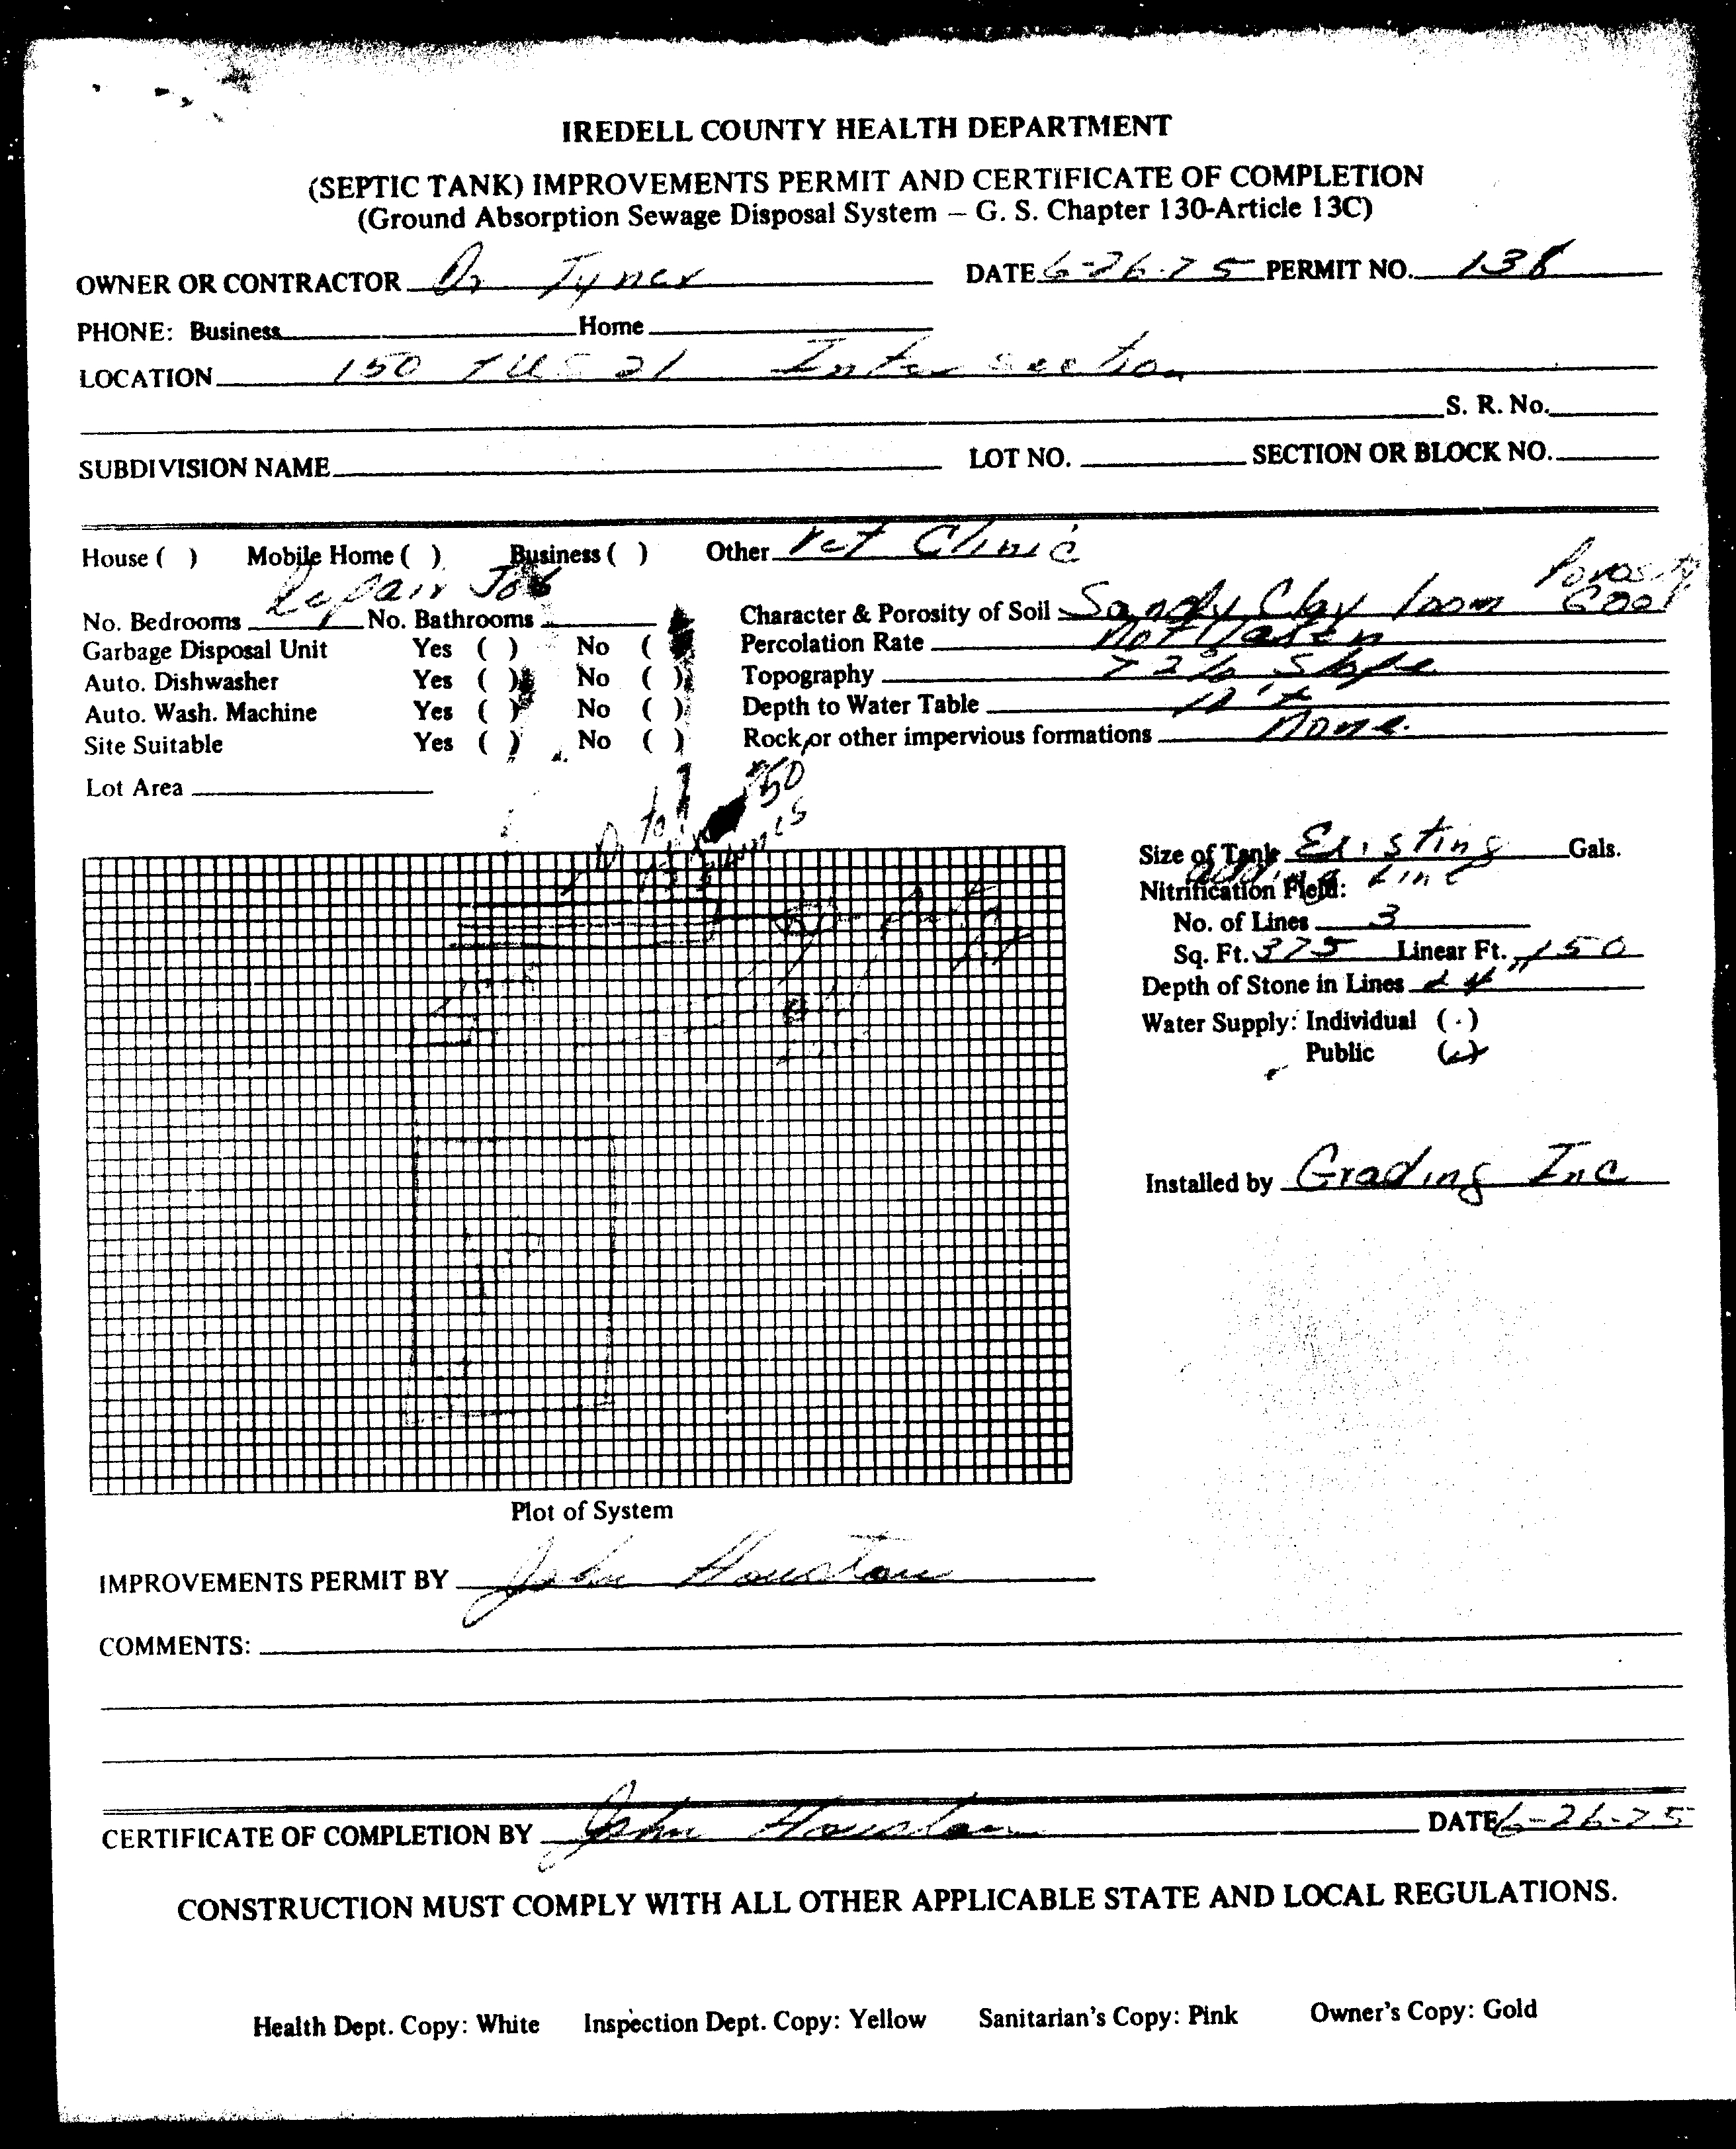 IREDELL COUNTY HEALTH DEPARTMENT
(SEPTIC TANK) IMPROVEMENTS PERMIT AND CERTIFICATE OF COMPLETION
(Ground Absorption Sewage Disposal System – G. S. Chapter 130-Article 13C)
OWNER OR CONTRACTOR Dr Tyner DATE 6-26-75 PERMIT NO. 138
PHONE: Business Home
LOCATION 150 + US 21 Intersection
S. R. No.
SUBDIVISION NAME LOT NO. SECTION OR BLOCK NO.
House ( ) Mobile Home ( ) Business ( ) Other Vet Clinic
Repair Job
Porosity
No. Bedrooms No. Bathrooms Character & Porosity of Soil Sandy Clay loom Good
Garbage Disposal Unit Yes ( ) No ( Percolation Rate not Taken
Auto. Dishwasher Yes ( ) No ( ) Topography > 2% Slope
Auto. Wash. Machine Yes ( ) No ( ) Depth to Water Table
Site Suitable Yes ( ) No ( ) Rock or other impervious formations none.
Lot Area
Size of Tank Existing Gals.
adding Line
Nitrification Field:
No. of Lines 3
Sq. Ft. 375 Linear Ft. 150
Depth of Stone in Lines 24"
Water Supply: Individual (.)
Public (✓)
Installed by Grading Inc
Plot of System
IMPROVEMENTS PERMIT BY John Houston
COMMENTS:
CERTIFICATE OF COMPLETION BY John Houston DATE 6-26-75
CONSTRUCTION MUST COMPLY WITH ALL OTHER APPLICABLE STATE AND LOCAL REGULATIONS.
Health Dept. Copy: White Inspection Dept. Copy: Yellow Sanitarian's Copy: Pink Owner's Copy: Gold